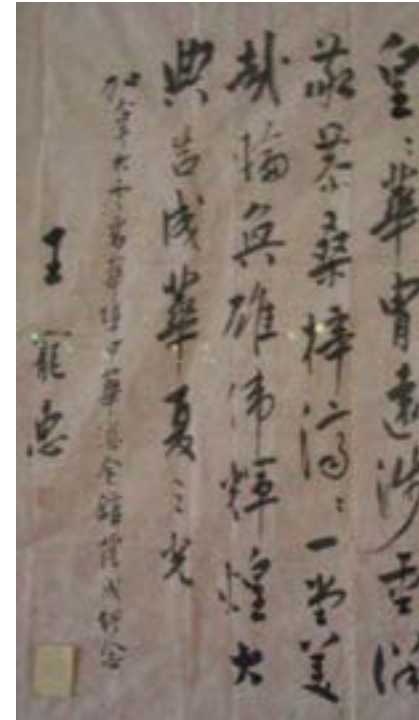 皇〻華胄遠涉重洋
敬恭桑梓濟〻一堂美
哉輪奐雄偉輝煌大
典告成華夏之光
加拿大雲高華埠中華會館落成紀念
王寵惠